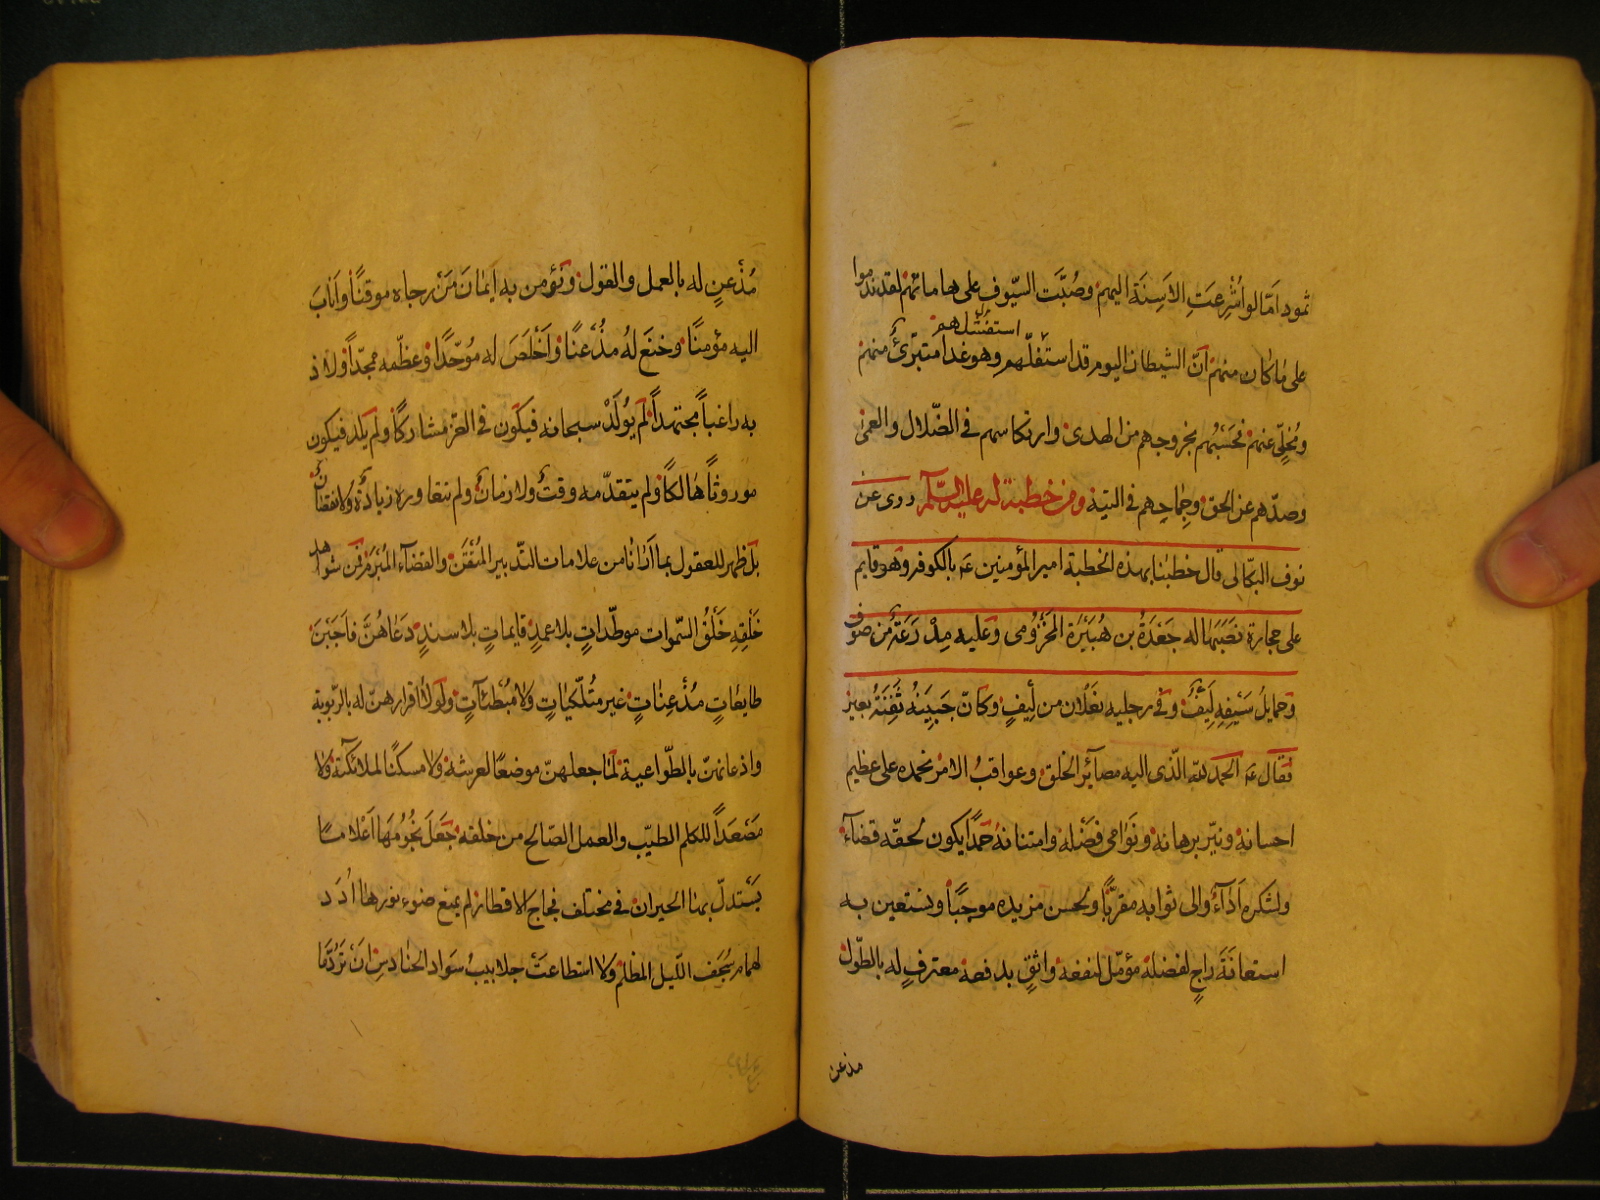 ثمود اَمَا لو اُشْرِعَتِ الاَسِنَة اليهم وصُبَّت السّيوف على هاماتهم لقد ندموا
استفزّهم
على مٰا كان منهم انّ الشيطان اليوم قد استفلّهم وهو غدا متبرّئ منهم
ومُخلٍّ عنهم فحَسْبُهم بخروجهم من الهدى وارتكاسهم فى الضّلال والعمىٰ
وصدّهم عن الحق وجِماحِهم فى التيه ومن خطبة له عليه السّلم روى عن
نوف البكالى قال خطبنا بهذه الخطبة امير المؤمنين عه بالكوفه وهو قايم
على حجارة نصَبَها له جَعْدَةُ بن هُبَيْرَة المَخْزُومى وعليه مِدْرَعَةٌ من صوف
وحمايلُ سَيْفِهِ لِيْفٌ وفى رجليه نَعْلان من لِيفٍ وكانّ جَبِيَنهُ ثَفِنَةُ بعيرٍ
فقال عه الحمد للّه الّذى اليه مصآئر الخلق وعواقبُ الامر نحمده على عظيم
احسانه ونيّر برهانه ونَوٰامى فَضْله وامتنانه حمداً يكون لحقّه قضآءً
ولشكره اَدٰآءً والى ثوابه مقرّباً ولحسن مزيده موجباً ونستعين به
استعانَةَ راجٍ لفضله مؤمّل لنفعه واثقٍ بدفعه معترفٍ له بالطّول
مذعن
مُذْعنٍ له بالعمل والقول ونؤمن به ايمٰانَ مَنْ رجاه موقنًا واَنابَ
اليه مؤمنًا وخنَعَ لهُ مذْعنًا واَخْلَصَ له مُوَحّدًا وعظّمه ممجّداً ولاذ
به راغباً مجتهداً لم يُولَدْ سبحانه فيكون فى العزّ مشاركًا ولم يلد فيكون
موروثاً هٰالكًا ولم يتقدّمه وقتٌ ولا زمانٌ ولم يتعاوره زيادةٌ ولا نقصٰانٌ
بل ظهر للعقول بما اَرٰانٰا من علامات التّدبير المُتْقَن والقضآء المُبْرَم فمن شواهد
خَلْقِهِ خَلْقُ السّموات موطّداتٍ بلا عمدٍ قايماتٍ بلا سندٍ دَعٰاهُنَّ فاَجَبْنَ
طايعاتٍ مُذْعِنٰاتٍ غير مُتَلَكّياتٍ ولا مُبْطئاتٍ ولولا اقرارهنّ له بالرّبوبية
واذعانهنّ بالطّواعية لمٰا جعلهنّ موضعًا لعرشه ولا مسكنًا لملائكته ولا
مَصْعَداً للكلم الطيّب والعمل الصّالح من خلقه جَعَلَ نُجُومَهَا اَعْلامًا
يَسْتدلّ بهٰا الحيران فى مختلف فجاج الاقطار لم يمنع ضوءَ نورهٰا اُدَد
لهمام سُجَف اللّيل المظلم ولا استطاعَتْ جلابيبُ سَواد الحنٰادس انْ تَرُدَّمٰا